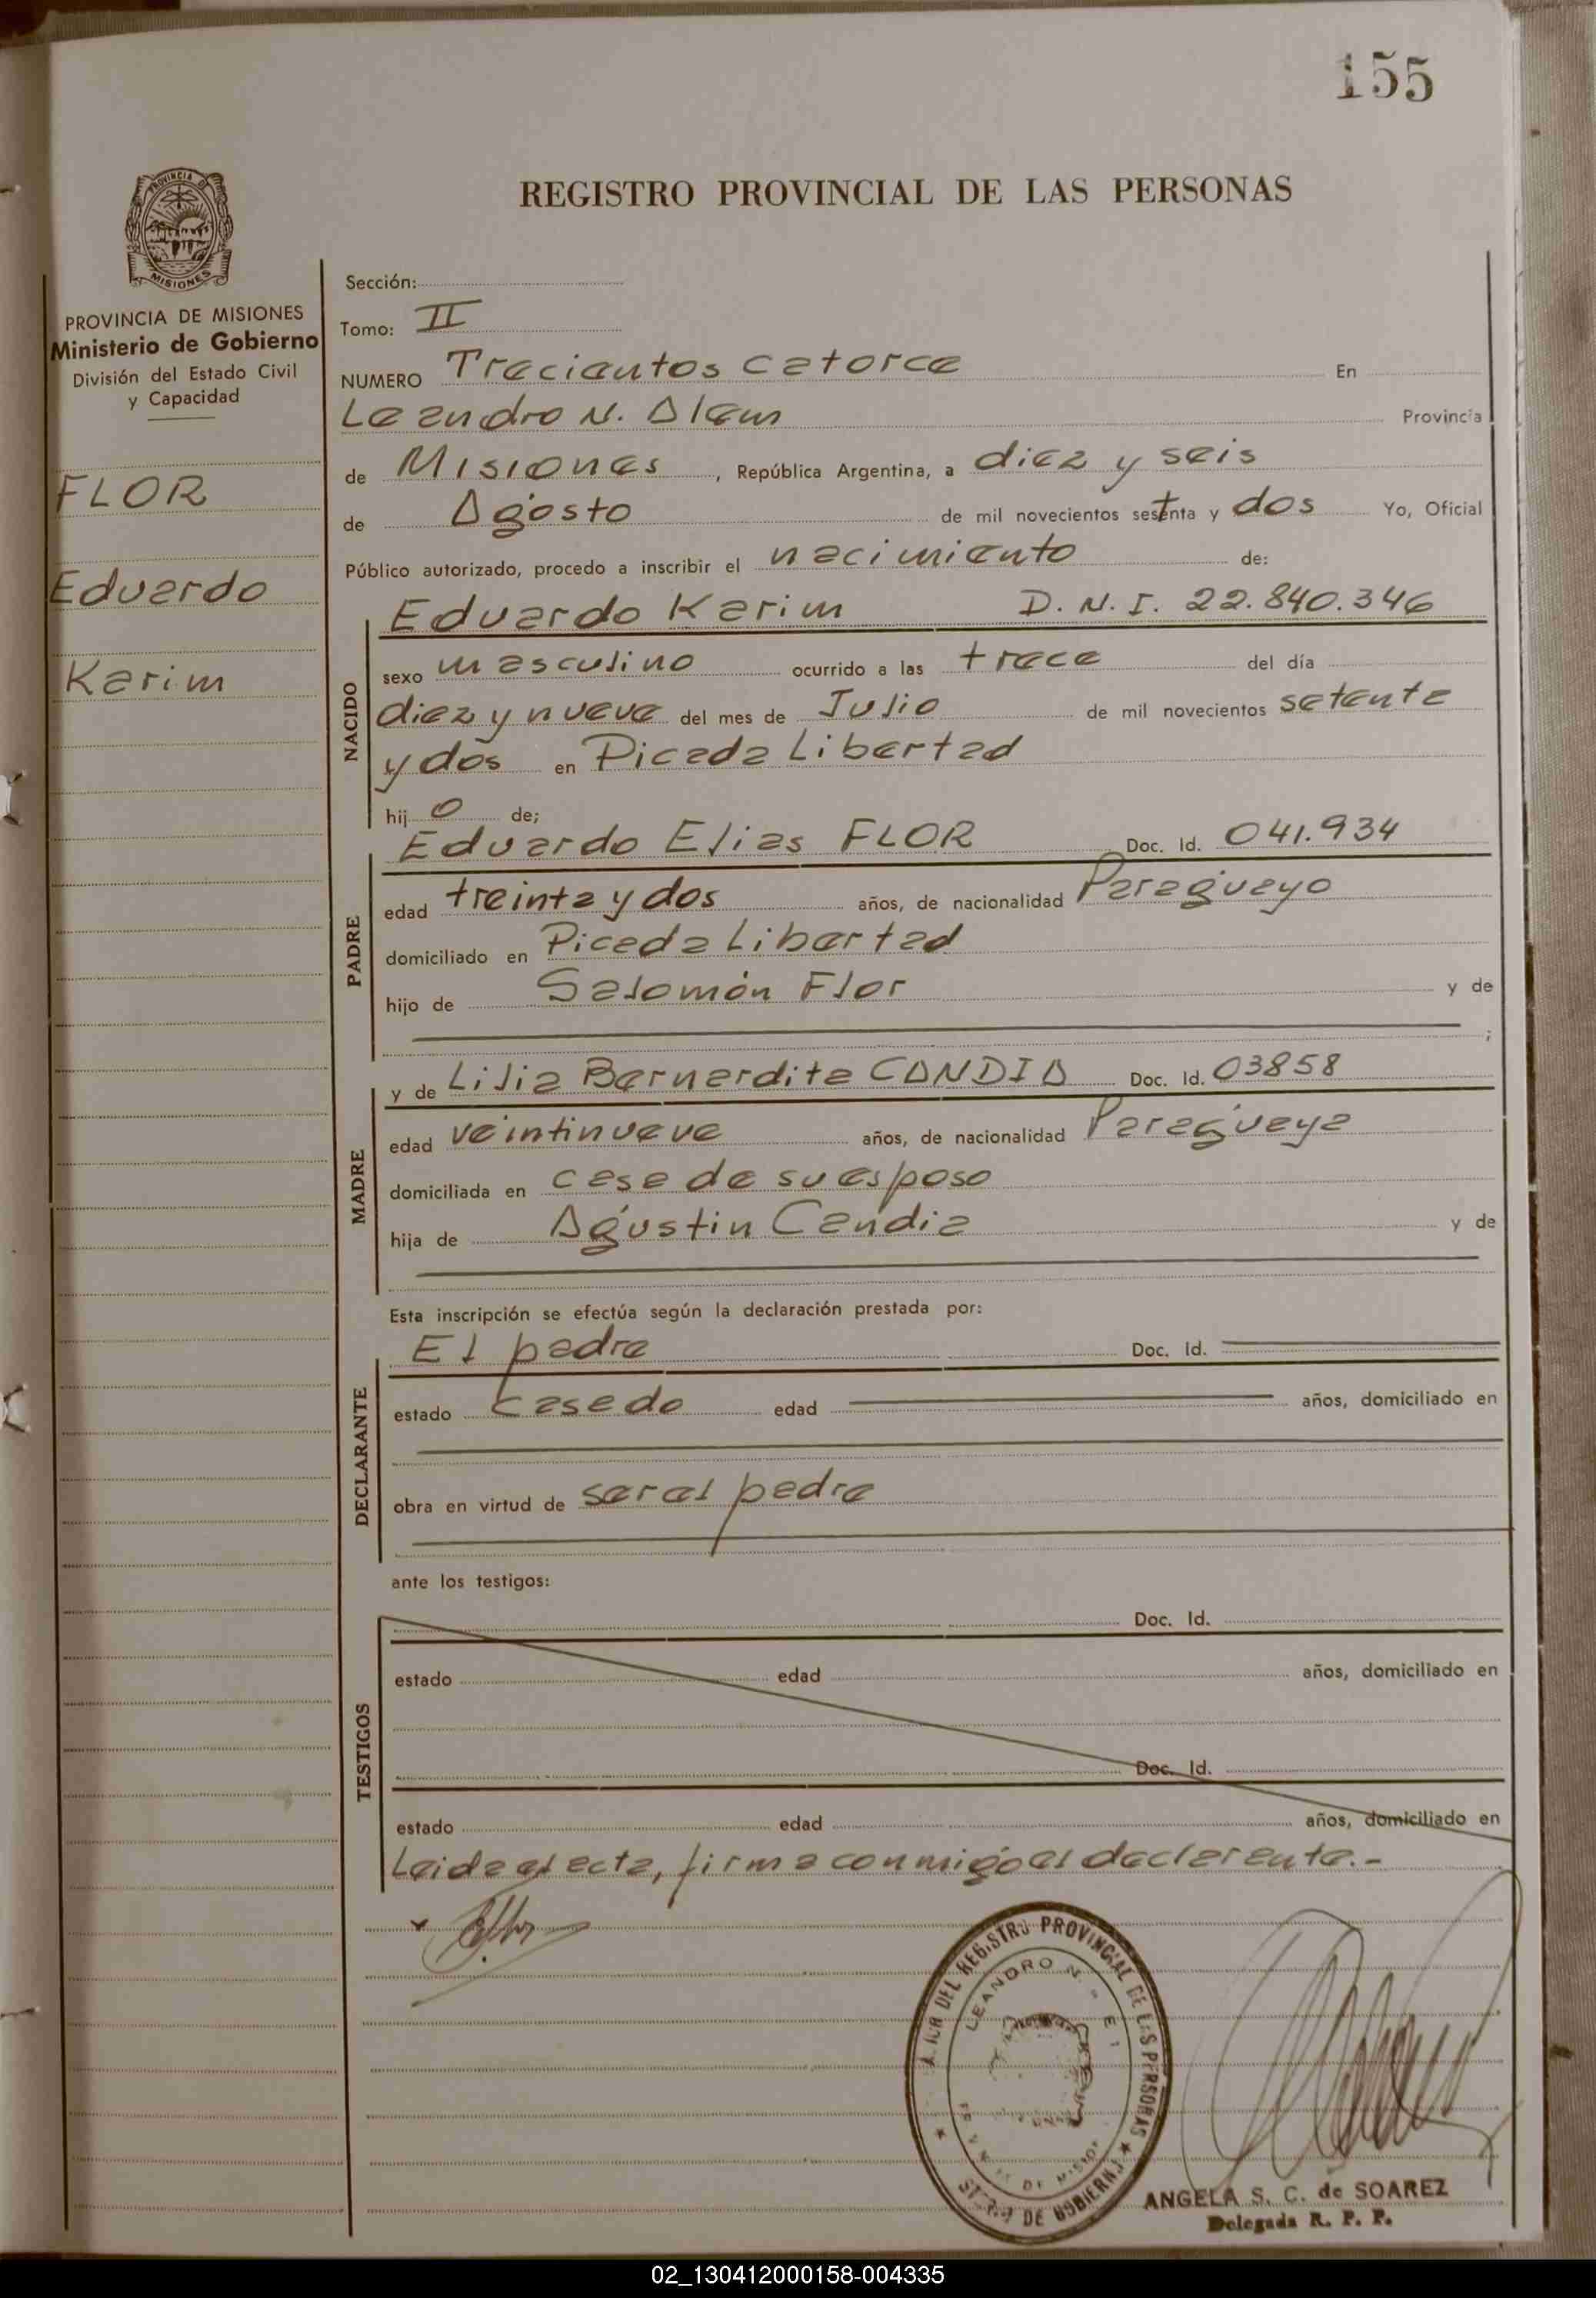 155
REGISTRO PROVINCIAL DE LAS PERSONAS
PROVINCIA DE
MISIONES
PROVINCIA DE MISIONES
Ministerio de Gobierno
División del Estado Civil
y Capacidad
FLOR
Eduardo
Karim
Sección:
Tomo: II
NUMERO Trecientos catorce En
Leandro N. Alem Provincia
de Misiones, República Argentina, a diez y seis
de Agosto de mil novecientos setenta y dos Yo, Oficial
Público autorizado, procedo a inscribir el nacimiento de:
Eduardo Karim D.N.I. 22.840.346
NACIDO
sexo masculino ocurrido a las trece del día
diez y nueve del mes de Julio de mil novecientos setenta
y dos en Picada Libertad
hij o de;
PADRE
Eduardo Elias FLOR Doc. Id. 041.934
edad treinta y dos años, de nacionalidad Paraguayo
domiciliado en Picada Libertad
hijo de Salomón Flor y de
;
MADRE
y de Lilia Bernardita CANDIA Doc. Id. 03858
edad veintinueve años, de nacionalidad Paraguaya
domiciliada en casa de su esposo
hija de Agustin Candia y de
Esta inscripción se efectúa según la declaración prestada por:
DECLARANTE
El padre Doc. Id.
estado casado edad años, domiciliado en
obra en virtud de ser el padre
ante los testigos:
TESTIGOS
Doc. Id.
estado edad años, domiciliado en
Doc. Id.
estado edad años, domiciliado en
Leida el acta, firma conmigo el declarante.-
DEL REGISTRO PROVINCIAL DE LAS PERSONAS
LEANDRO N.
DE GOBIERNO
ANGELA S. C. de SOAREZ
Delegada R. P. P.
02_130412000158-004335